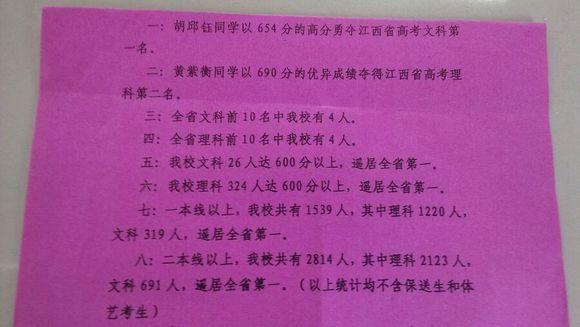 一：胡邱钰同学以 654 分的高分勇夺江西省高考文科第
一名。
二：黄紫衡同学以 690 分的优异成绩夺得江西省高考理
科第二名。
三：全省文科前 10 名中我校有 4 人。
四：全省理科前 10 名中我校有 4 人。
五：我校文科 26 人达 600 分以上，遥居全省第一。
六：我校理科 324 人达 600 分以上，遥居全省第一。
七：一本线以上，我校共有 1539 人，其中理科 1220 人，
文科 319 人，遥居全省第一。
八：二本线以上，我校共有 2814 人，其中理科 2123 人，
文科 691 人，遥居全省第一。（以上统计均不含保送生和体
艺考生）